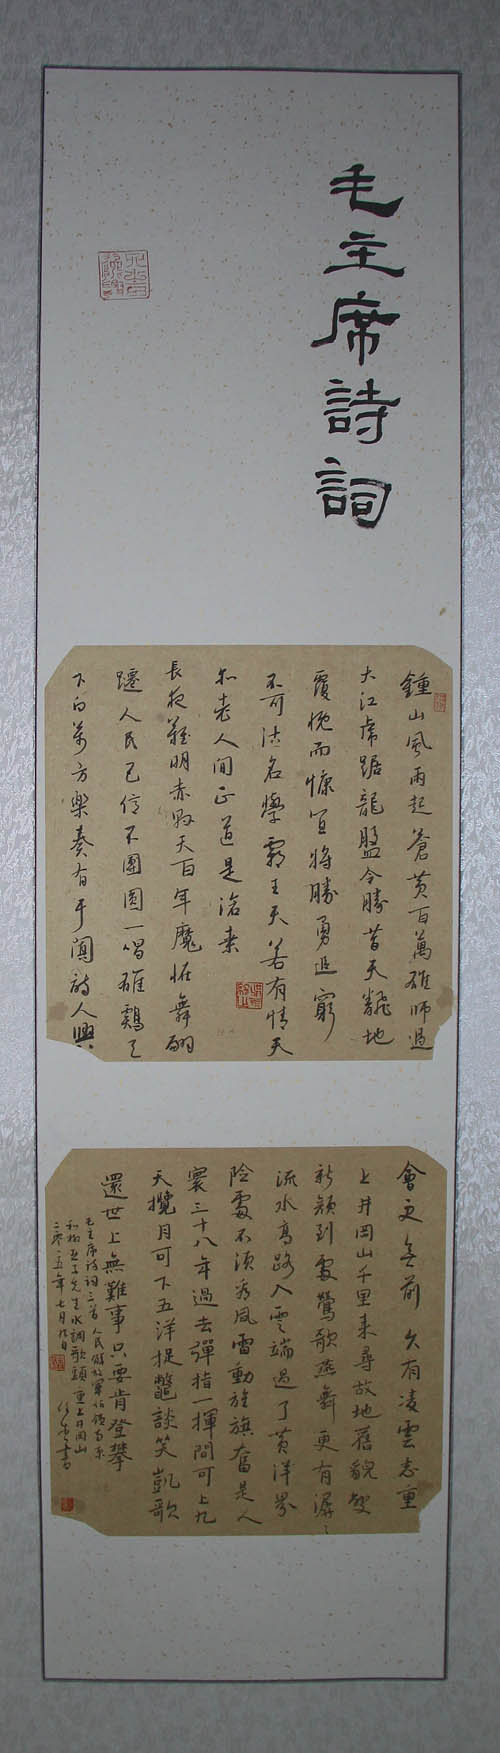 毛主席詩詞
鍾山風雨起蒼黃百萬雄師過
大江虎踞龍盤今勝昔天翻地
覆慨而慷宜將勝勇追窮
不可沽名學霸王天若有情天
亦老人間正道是滄桑
長夜難明赤縣天百年魔怪舞翩
躚人民五億不團圓一唱雄鷄天
下白萬方樂奏有于闐詩人興
會更無前 久有凌雲志重
上井岡山千里來尋故地舊貌變
新顏到處鶯歌燕舞更有潺〻
流水高路入雲端過了黃洋界
險處不須看風雷動旌旗奮是人
寰三十八年過去彈指一揮間可上九
天攬月可下五洋捉鱉談笑凱歌
還世上無難事只要肯登攀
毛主席詩詞三首人民解放軍佔領南京
和柳亞子先生水調歌頭重上井岡山
二零一五年七月九日 書